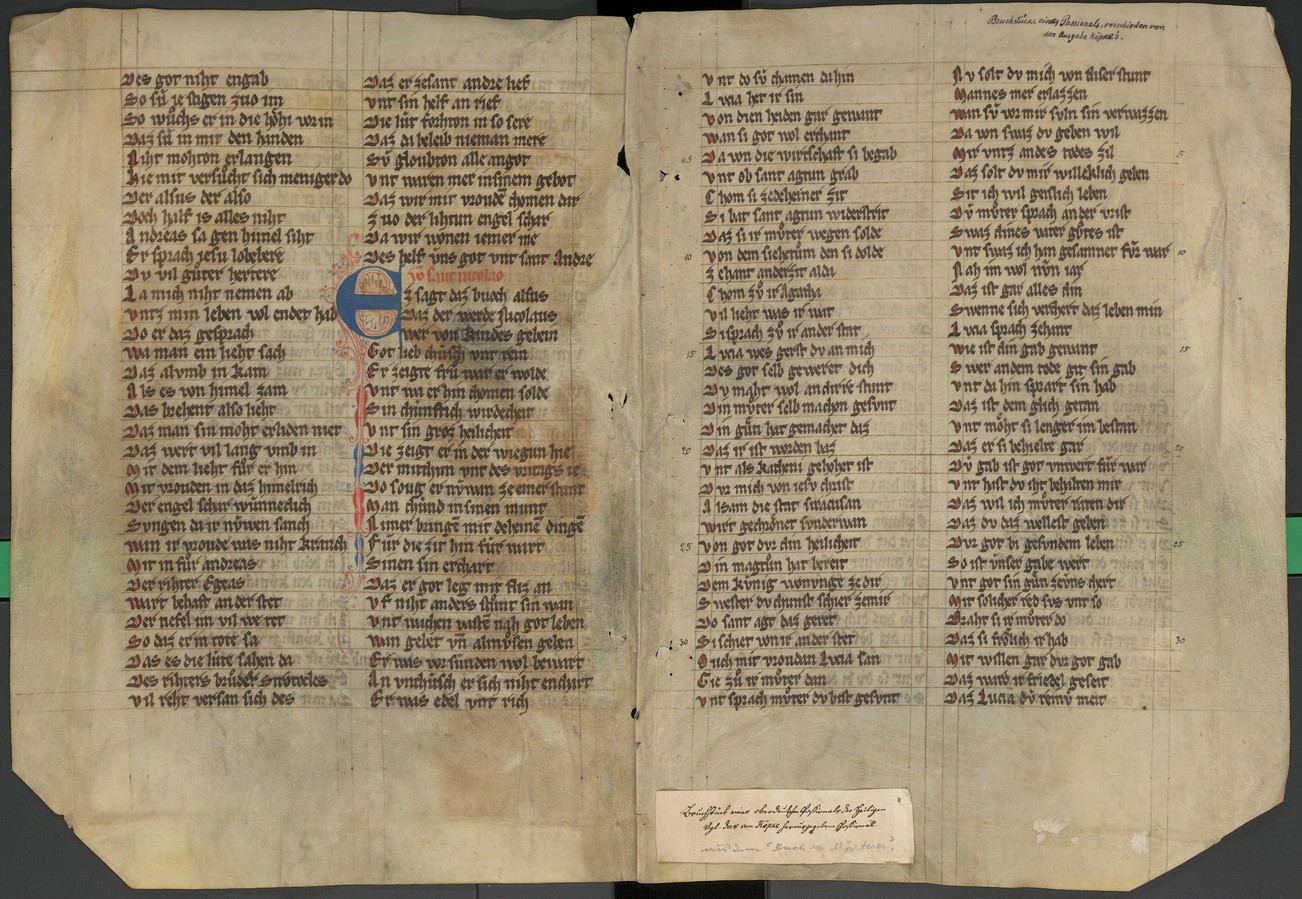 Des got niht engab
So sü ie stigen zuo im
So wuͦchs er in die hoͤhi vor in
Daz sü in mit den handen
Niht mohton erlangen
Hie mit versuͦcht sich meniger do
Der alsus der also
Doch half is alles niht
Andreas sa gen himel siht
Er sprach jesu lobebere
Du vil guͤter hertere
La mich niht nemen ab
Vntz min leben wol endet hab
Do er daz gesprach
Wa man ein lieht sach
Daz al vmb in kam
Als es von himel zam
Das brehent also lieht
Daz man sin moht erliden niet
Daz wert vil lang vmb in
Mit dem lieht fuͦr er hin
Mit vrouden in daz himelrich
Der engel schar wunneclich
Sungen da ir nuͤwen sanch
Wan ir vroude was niht kranch
Mit in fuͦr andreas
Der rihter Egeas
Wart behaft an der stet
Der tiefel im vil we tet
So daz er in tote sa
Das es die lüte sahen da
Des rihters bruͦder Stratocles
Vil reht versan sich des
Daz er zesant andre lief
Vnt sin helf an rief
Die lüt forhton in so sere
Daz da beleib nieman mere
Sü gloubton alle an got
Vnt waren mer in sinem gebot
Daz wir mit vroude chomen dar
Zuo der liehtun engel schar
Da wir wonen iemer me
Des helf uns got vnt sant Andre
Von Sant nicolao
Ez sagt daz buoch alsus
Daz der werde Nicolaus
Wer von kindes gebein
Got lieb chüsch vnt rein
Er zeigte fruͦ war er wolde
Vnt wa er hin chomen solde
Sin chünftich wirdecheit
Vnt sin groz heilicheit
Die zeigt er in der wiegun hie
Der mitchun vnt des vritags ie
Do soug er nuͤwan ze einer stunt
Man chund in sinen munt
Nimer bringen mit deheinen dingen
Für die zit hin für wart
Sinen sin erchart
Daz er got leg mit fliz an
Vf niht anders stuͦnt sin wan
Vnt wachen vaste nah got leben
Wan gebet vn almuͦsen geben
Er was vor sünden wol bewart
An vnchüsch er sich niht enchart
Er was edel vnt rich
Bruchstücke eines Passionals, verschieden von
der Ausgabe Köpke's.
Vnt do sü chamen da hin
Lucia het ir sin
Von dien heiden gar gewant
Wan si got wol erchant
Da von die wirtschaft si begab
Vnt ob sant agtun grab
Chom si zedeheiner zit
Si bat sant agtun widerstrit
Daz si ir muͦter wegen solde
Von dem siehetuͦm den si dolde
Zehant anderzit alda
Chom zuͦ ir Agatha
Vil lieht was ir wat
Si sprach zuͦ ir an der stat
Lucia wes gerst du an mich
Des got selb geweret dich
Du maht wol an dirre stunt
Din muͦter selb machon gesunt
Din guͤti hat gemachet daz
Daz ir ist worden baz
Vnt als katheni gehoͤhet ist
Dur mich von iesu christ
Alsam die stat siracusan
Wirt gechroͤnet sunderwan
Von got dur din heilicheit
Din magtuͦn hat bereit
Dem künig wonunge ze dir
Swester du chunst schier ze mir
Do sant agt daz geret
Si schiet von ir an der stet
Ouch mit vroudan Lucia san
Gie zuͦ ir muͦter dan
Vnt sprach muͦter du bist gesunt
Nu solt du mich von diser stunt
Mannes mer erlazzen
Wan sü vor mir suln sin verwazzen
Da von swaz du geben wil
Mir vntz an des todes zil
Daz solt du mir willeklich geben
Sit ich wil geislich leben
Dü muͦter sprach an der vrist
Swaz dines vater guͦtes ist
Vnt swaz ich han gesamnet für war
Nah im wol nün iar
Daz ist gar alles din
Swenne sich verchert daz leben min
Lucia sprach zehant
Wie ist din gab gewant
Swer an dem tode git sin gab
Vnt da hin spart sin hab
Daz ist dem glich getan
Vnt moͤht si lenger im bestan
Daz er si behielte gar
Dü gab ist got vnwert für war
Vnt hast du iht behalten mir
Daz wil ich muͦter raten dir
Daz du daz wellest geben
Dur got bi gesundem leben
So ist vnser gabe wert
Vnt got sin guͤn zeuns chert
Mit solicher red sus vnt so
Braht si ir muͦter do
Daz si froͤlich ir hab
Mit willen gar dur got gab
Daz wart ir friedel geseit
Daz Lucia dü reinu meit
5
10
15
20
25
30
5
10
15
20
25
30
Bruchstück eines oberdeutschen Passionals der Heiligen
Vgl. das von Köpke herausgegebene Passional
aus dem "Buch der Märterer".